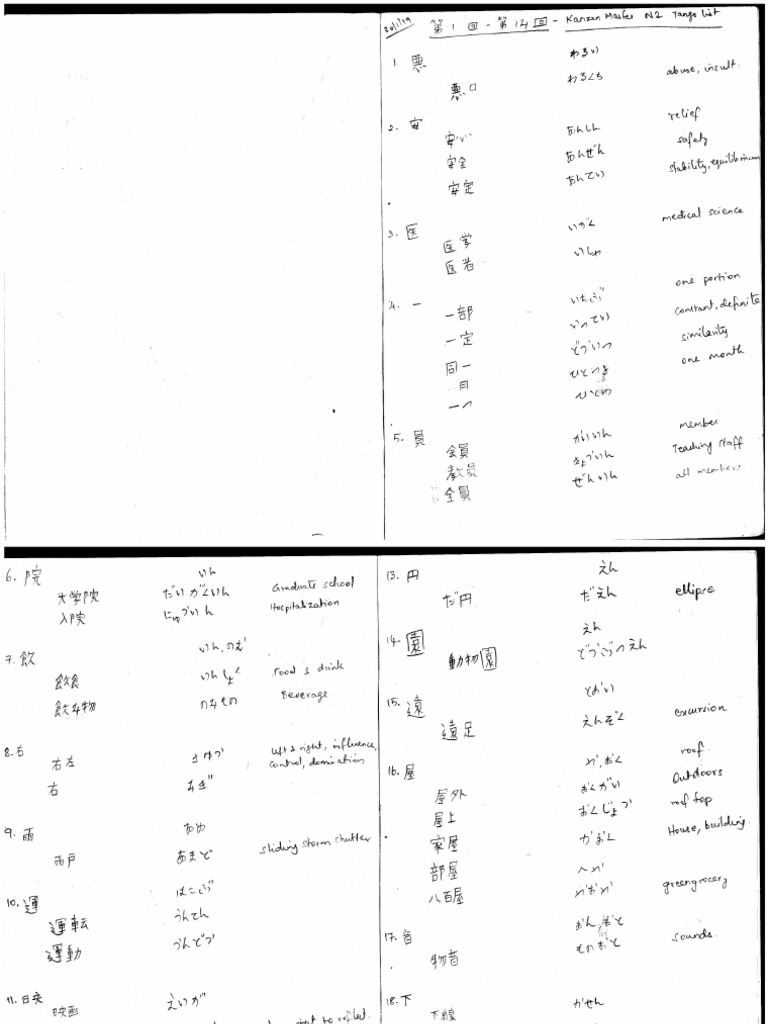 20/1/19 第1回 - 第14回 - Kanzen Master N2 Tango List
1 悪 わるい
悪口 わるくち abuse, insult.
2. 安
安い あんしん relief
安全 あんぜん safety
安定 あんてい stability, equilibrium
3. 医
医学 いがく medical science
医者 いしゃ
4. 一
一部 いちぶ one portion
一定 いってい constant, definite
同一 どういつ similarity
一月 ひとつき one month
一つ
5. 員
会員 かいいん member
教員 きょういん Teaching staff
全員 ぜんいん all members.
6. 院 いん
大学院 だいがくいん Graduate school
入院 にゅういん Hospitalization
7. 飲 いん, のむ
飲食 いんしょく Food & drink
飲み物 のみもの Beverage
8. 右
右左 さゆう left & right, influence, control, domination
右 みぎ
9. 雨 あめ
雨戸 あまど sliding storm shutter
10. 運 はこぶ
運転 うんてん
運動 うんどう
11. 映
映画 えいが
to reflect.
13. 円 えん
だ円 だえん ellipse
14. 園 えん
動物園 どうぶつえん
15. 遠 とおい
遠足 えんそく excursion
16. 屋 や, おく roof
屋外 おくがい Outdoors
屋上 おくじょう roof top
家屋 かおく House, building.
部屋 へや
八百屋 やおや greengrocery
17. 音 おん, おと
物音 ものおと sounds.
18. 下
下線 かせん